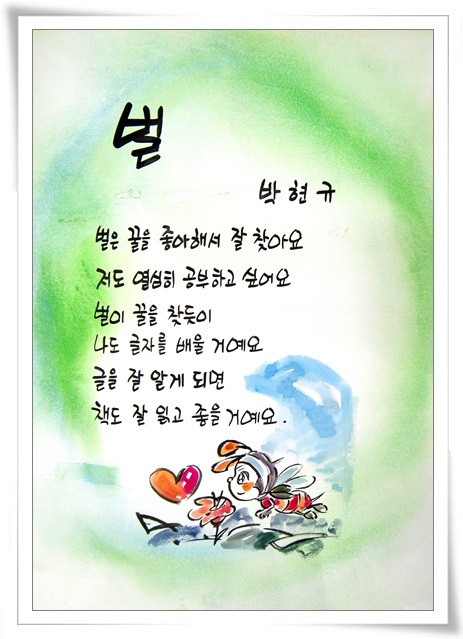 벌
박현규
벌은 꿀을 좋아해서 잘 찾아요
저도 열심히 공부하고 싶어요
벌이 꿀을 찾듯이
나도 글자를 배울 거예요
글을 잘 알게 되면
책도 잘 읽고 좋을거예요.